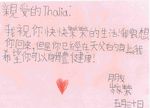 親愛的Thalia:
我祝你快快樂樂的生活!我很想
你回來,但是你已經在天父的身上!我
希望你可以身體健康!
朋友
五月二十日